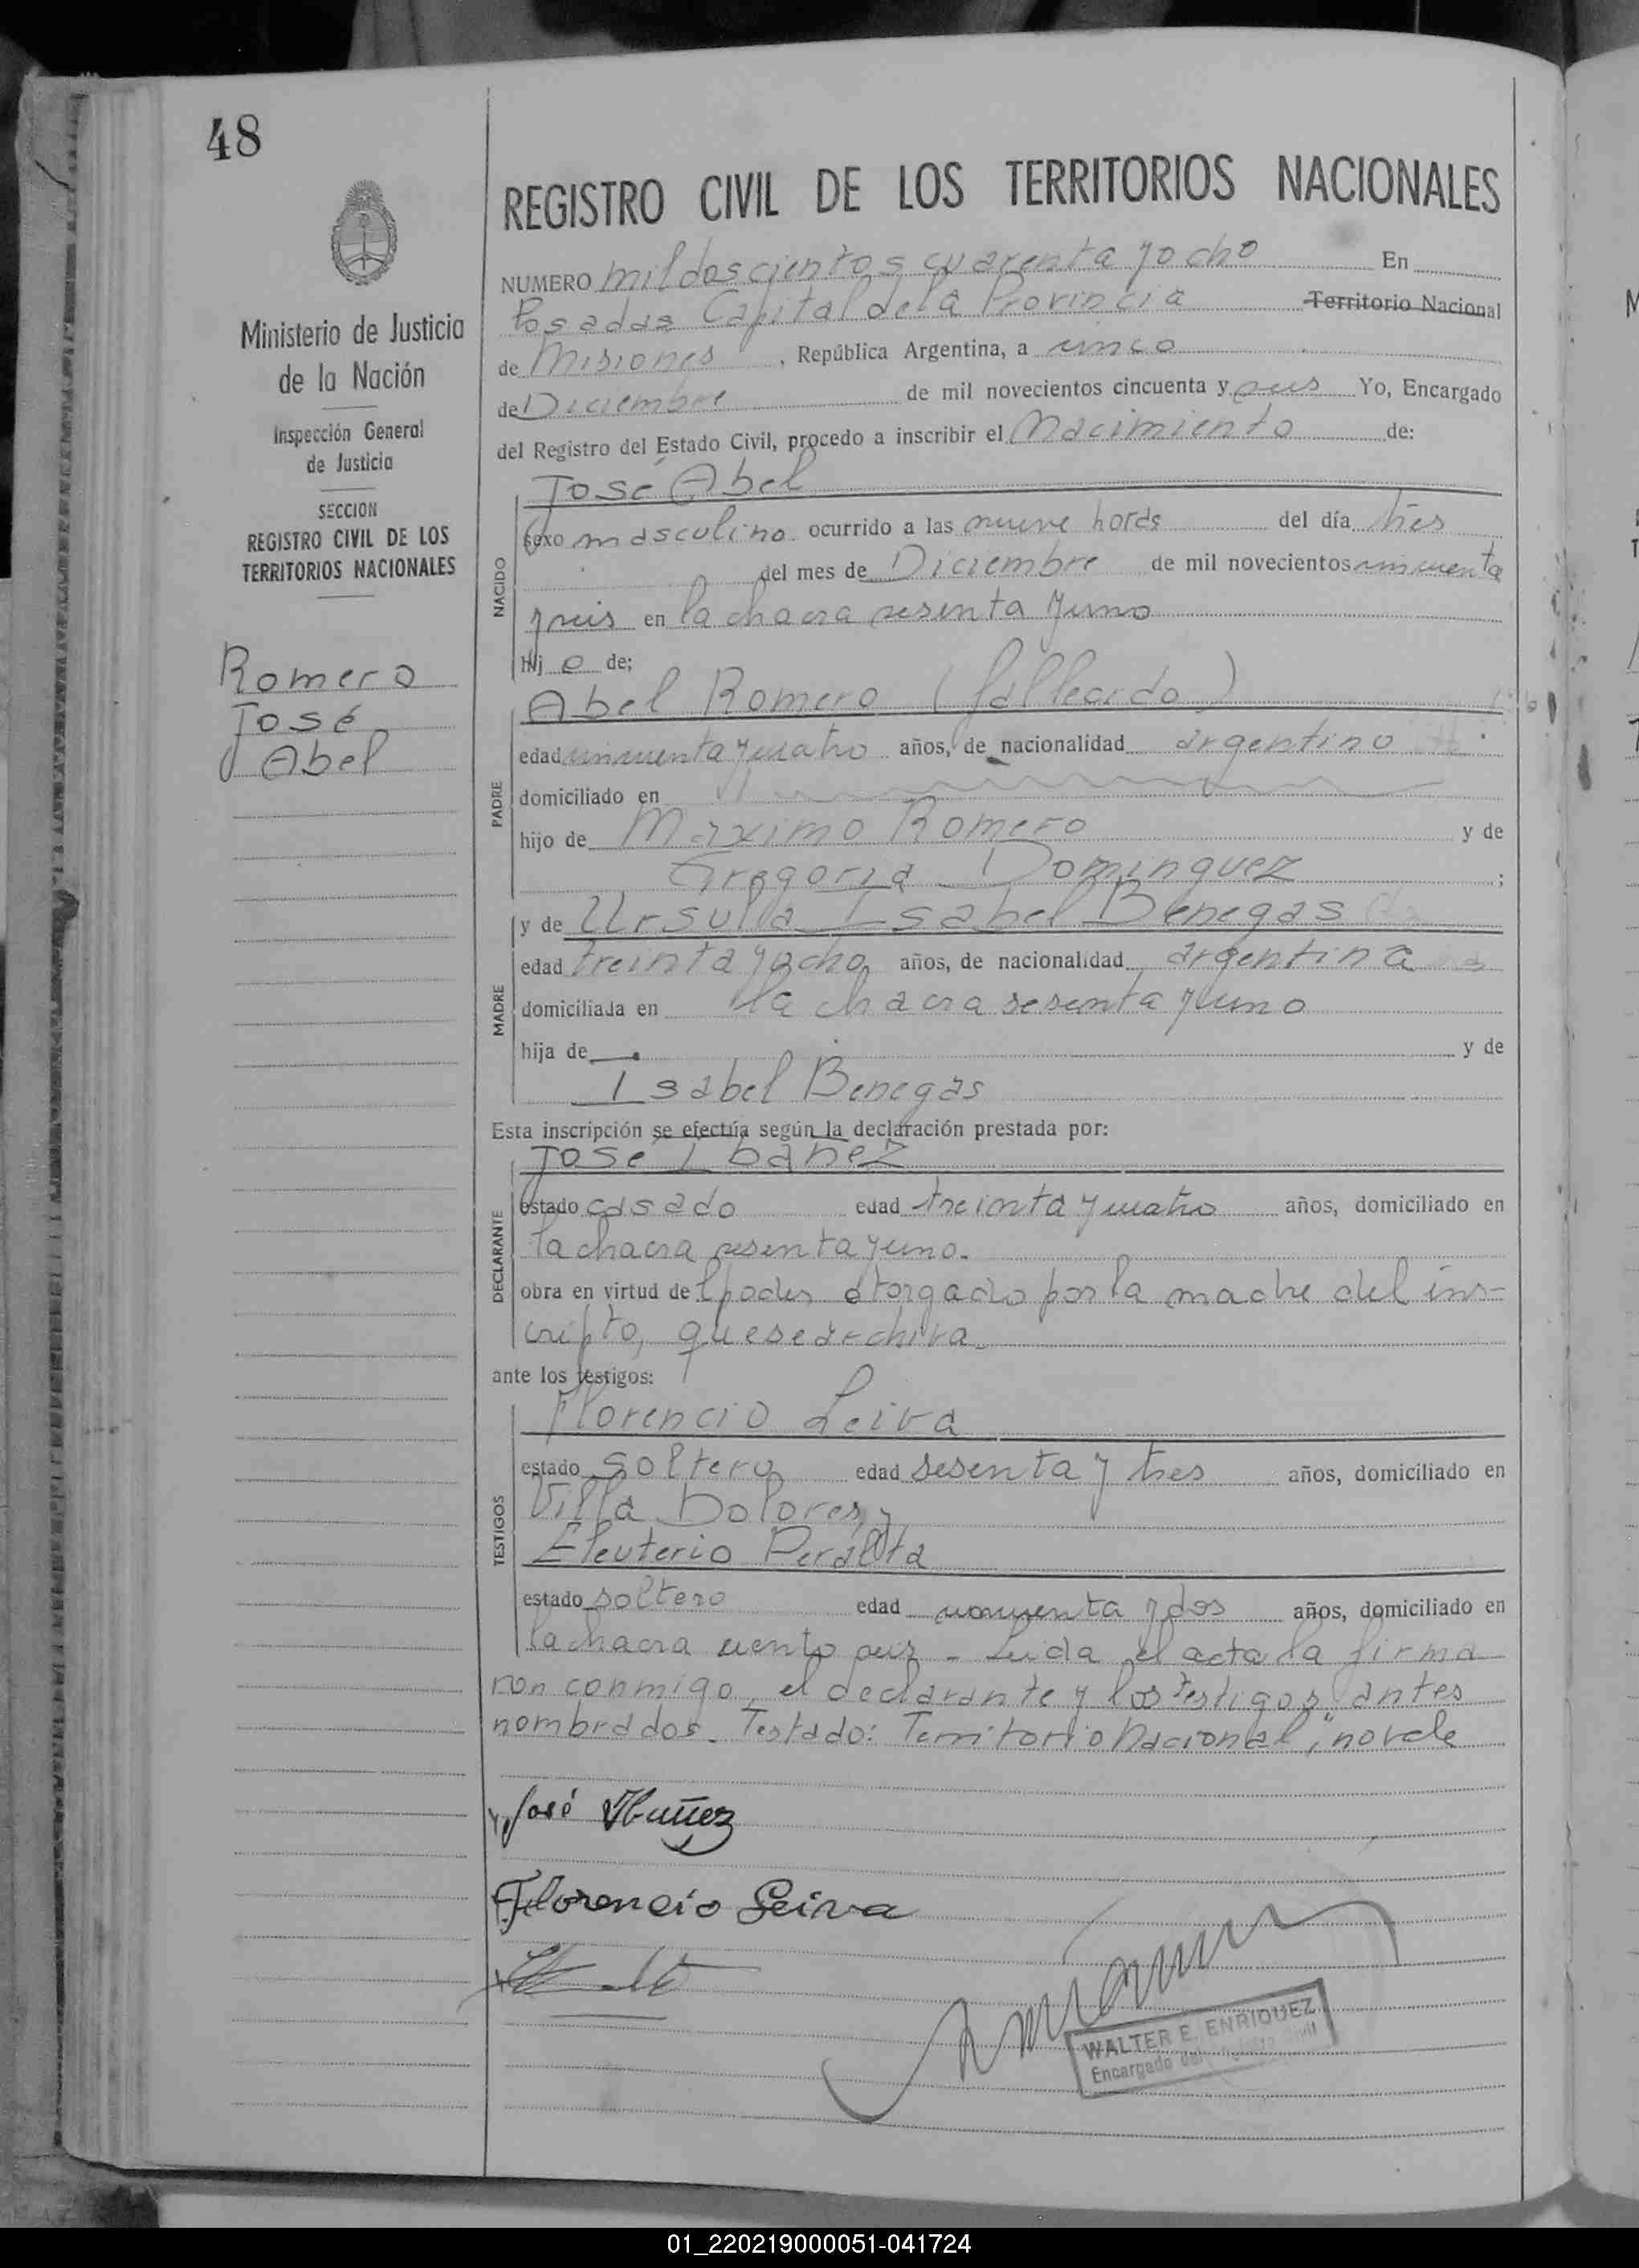 48
REGISTRO CIVIL DE LOS TERRITORIOS NACIONALES
Ministerio de Justicia
de la Nación
Inspección General
de Justicia
SECCION
REGISTRO CIVIL DE LOS
TERRITORIOS NACIONALES
Romero
José
Abel
NUMERO mil doscientos cuarenta y ocho En
Posadas Capital de la Provincia Territorio Nacional
de Misiones, República Argentina, a cinco
de Diciembre de mil novecientos cincuenta y seis Yo, Encargado
del Registro del Estado Civil, procedo a inscribir el Nacimiento de:
NACIDO
José Abel
sexo masculino ocurrido a las nueve horas del día tres
del mes de Diciembre de mil novecientos cincuenta
y seis en la chacra sesenta y uno
hij o de;
PADRE
Abel Romero (fallecido)
edad cincuenta y cuatro años, de nacionalidad argentino
domiciliado en
hijo de Maximo Romero y de
Gregoria Dominguez ;
MADRE
y de Ursula Isabel Benegas
edad treinta y ocho años, de nacionalidad argentina
domiciliada en la chacra sesenta y uno
hija de y de
Isabel Benegas
Esta inscripción se efectúa según la declaración prestada por:
DECLARANTE
José Ibañez
estado casado edad treinta y cuatro años, domiciliado en
la chacra sesenta y uno.
obra en virtud de l poder otorgado por la madre del ins-
cripto, que se archiva.
ante los testigos:
TESTIGOS
Florencio Leiva
estado soltero edad sesenta y tres años, domiciliado en
Villa Dolores, y
Eleuterio Peralta
estado soltero edad cincuenta y dos años, domiciliado en
la chacra ciento seis - Leida el acta la firma
ron conmigo, el declarante y los testigos antes
nombrados. Testado: Territorio Nacional," no vale
José Ibañez
Florencio Leiva
WALTER E. ENRIQUEZ
Encargado del
01_220219000051-041724